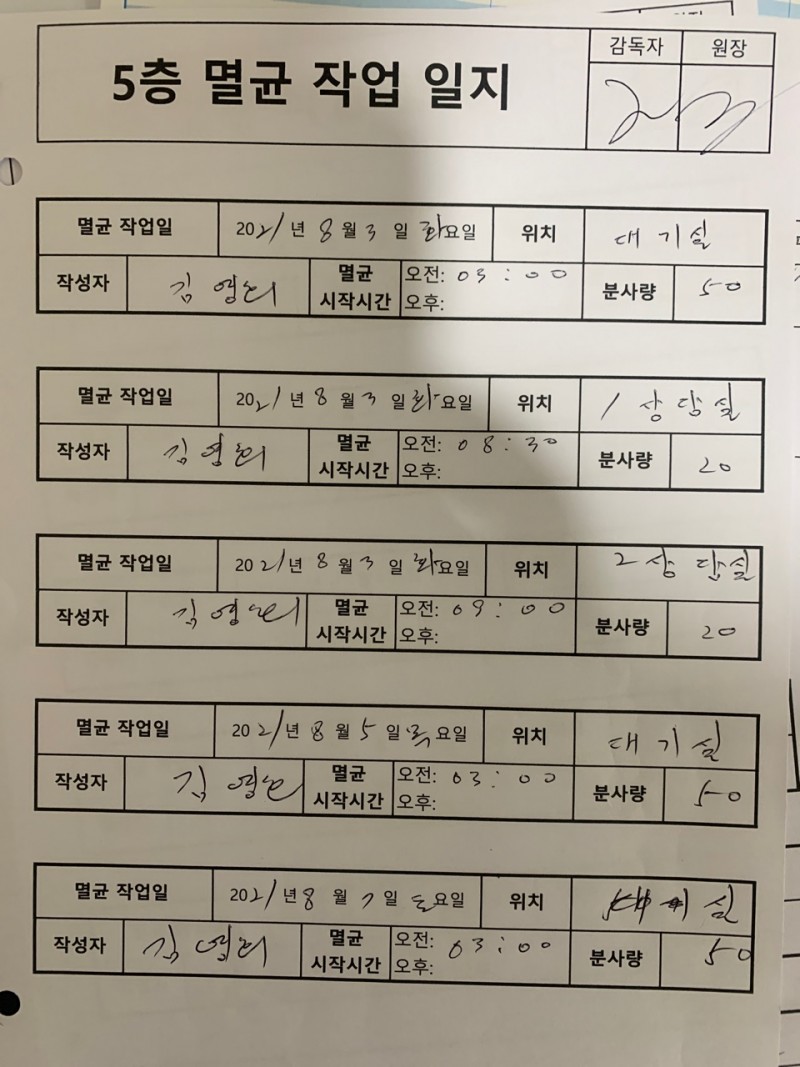 감독자 원장
5층 멸균 작업 일지
멸균 작업일 2021년 8월 3일 화요일 위치 대기실
작성자 김영희 멸균 시작시간 오전: 03:00 분사량 50
오후:
멸균 작업일 2021년 8월 3일 화요일 위치 1 상담실
작성자 김영희 멸균 시작시간 오전: 08:30 분사량 20
오후:
멸균 작업일 2021년 8월 3일 화요일 위치 2 상담실
작성자 김영희 멸균 시작시간 오전: 09:00 분사량 20
오후:
멸균 작업일 2021년 8월 5일 목요일 위치 대기실
작성자 김영희 멸균 시작시간 오전: 03:00 분사량 50
오후:
멸균 작업일 2021년 8월 7일 토요일 위치
작성자 김영희 멸균 시작시간 오전: 03:00 분사량 50
오후: